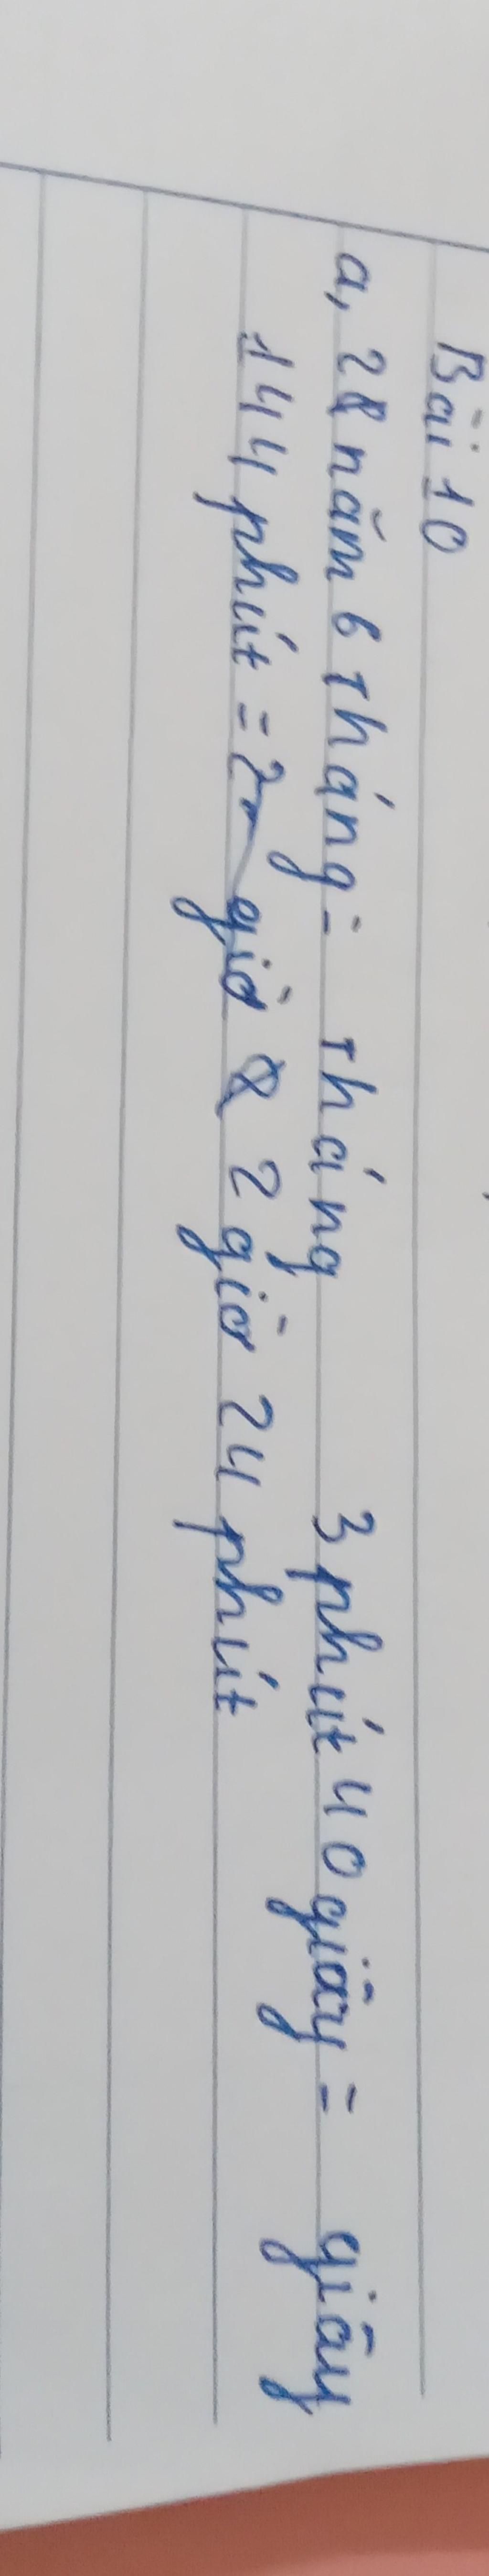 Bài 10
a, 28 năm 6 tháng = tháng 3 phút 40 giây = giây
144 phút = 2 giờ 2 giờ 24 phút